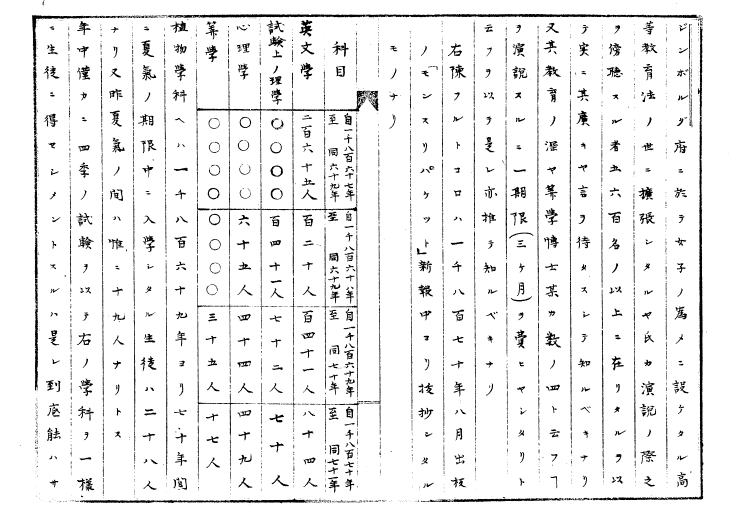 ジンボルグ府ニ於テ女子ノ為メニ設ケタル高
等教育法ノ世ニ擴張シタルヤ氏カ演説ノ際之
ヲ傍聴スル者五六百名ノ以上ニ在リタルヲ以
テ実ニ其廣キヤ言ヲ待タスシテ知ルベキナリ
又其教育ノ深ヤ筭学博士某カ数ノ四ト云フヿ
ヲ演説スルニ一期限(三ケ月)ヲ費ヒヤシタリト
云フヲ以テ是レ亦推テ知ルベキナリ
右陳フルトコロハ一千八百七十年八月出板
ノ「モンスリパケット」新報中ヨリ抜抄シタル
モノナリ
科目 自一千八百六十七年至同六十九年 自一千八百六十八年至同六十九年 自一千八百六十九年至同七十年 自一千八百七十年至同七十一年
英文学 二百六十五人 百二十人 百四十一人 八十四人
試験上ノ理学 〇〇〇〇 百四十一人 七十二人 七十人
心理学 〇〇〇〇 六十五人 四十四人 四十九人
筭学 〇〇〇〇 〇〇〇〇 三十五人 十七人
植物学科ヘハ一千八百六十九年ヨリ七十年間
ニ夏氣ノ期限中ニ入学シタル生徒ハ二十八人
ナリ又昨夏氣ノ間ハ惟ニ十九人ナリトス
年中僅カニ四季ノ試験ヲ以テ右ノ学科ヲ一様
ニ生徒ニ得セシメントスルハ是レ到底能ハサ